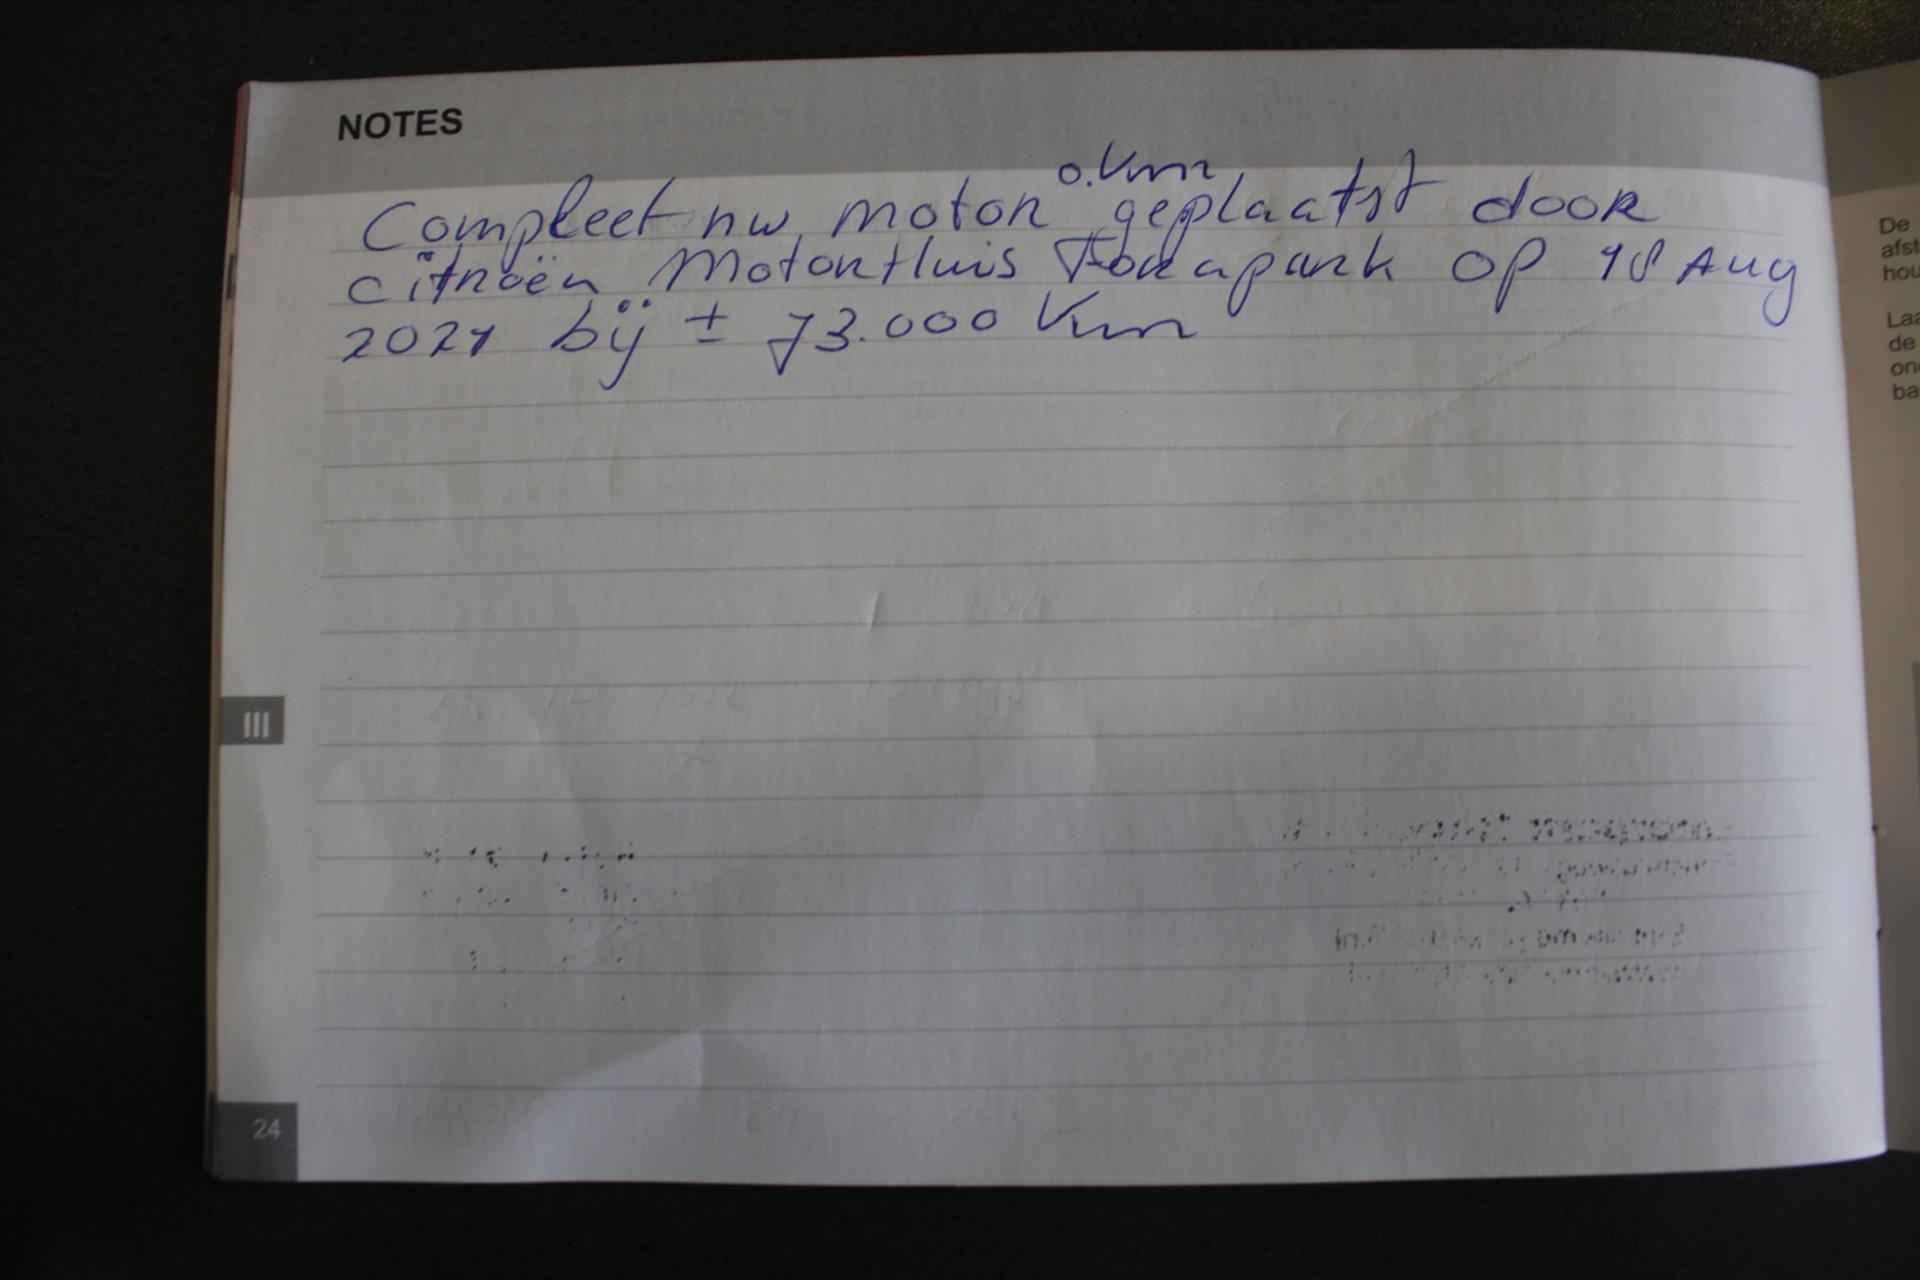 NOTES
o.Km
Compleet nw. motor geplaatst door
Citroën MotorHuis Forapark op 18 Aug
2021 bij ± 73.000 Km
III
24
De
afst
hou
Laa
de
ond
ba